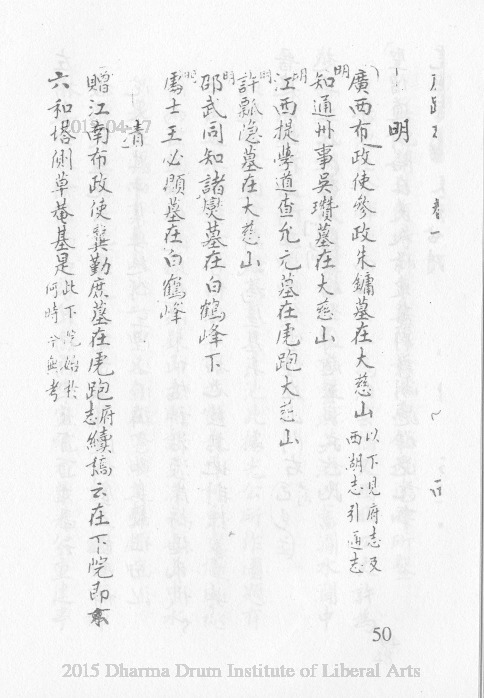 卷一
明
廣西布政使參政朱鏞墓在大慈山以下見府志及西湖志引通志
明知通州事吳瓚墓在大慈山
明江西提學道查允元墓在虎跑大慈山
明許瓢隱墓在大慈山
明邵武同知諸燮墓在白鶴峰下
明處士王必顯墓在白鶴峰
清
贈江南布政使龔勤庶墓在虎跑府志續稿云在下院即
六和塔側草菴基是此下院始於何時今無考
50
2015 Dharma Drum Institute of Liberal Arts